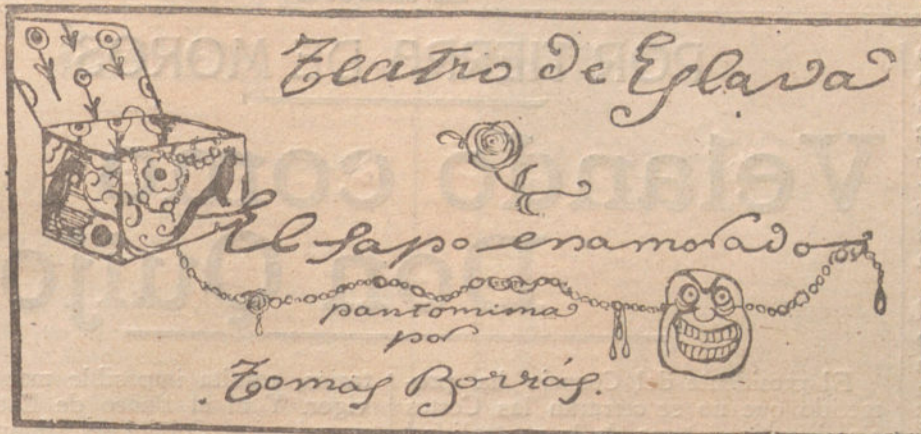 Teatro de Eslava
El sapo enamorado
pantomima
por
Tomas Borrás.